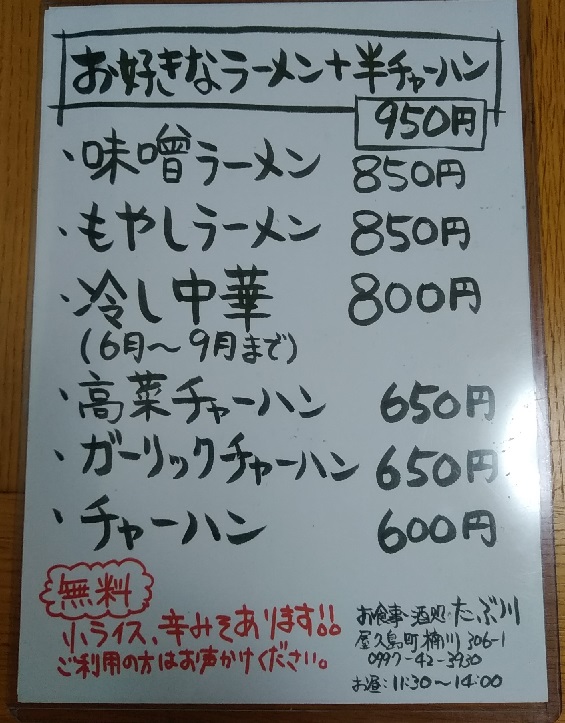 お好きなラーメン+半チャーハン
950円
・味噌ラーメン 850円
・もやしラーメン 850円
・冷し中華 800円
(6月〜9月まで)
・高菜チャーハン 650円
・ガーリックチャーハン 650円
・チャーハン 600円
無料
小ライス、辛みそあります!!
ご利用の方はお声かけください。
お食事・酒処・たぶ川
屋久島町楠川306-1
0997-42-3930
お昼:11:30〜14:00